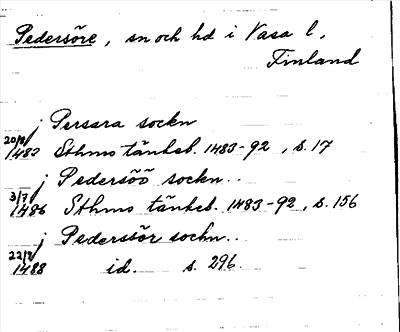 Pedersöre, sn och hd i Vasa l,
Finland
j Persara sockn
20/8 1483 Sthms tänkeb. 1483-92, s. 17
j Pedersöö sockn..
3/7 1486 Sthms tänkeb. 1483-92, s. 156
j Pederssör sockn..
22/2 1488 id. s. 296.